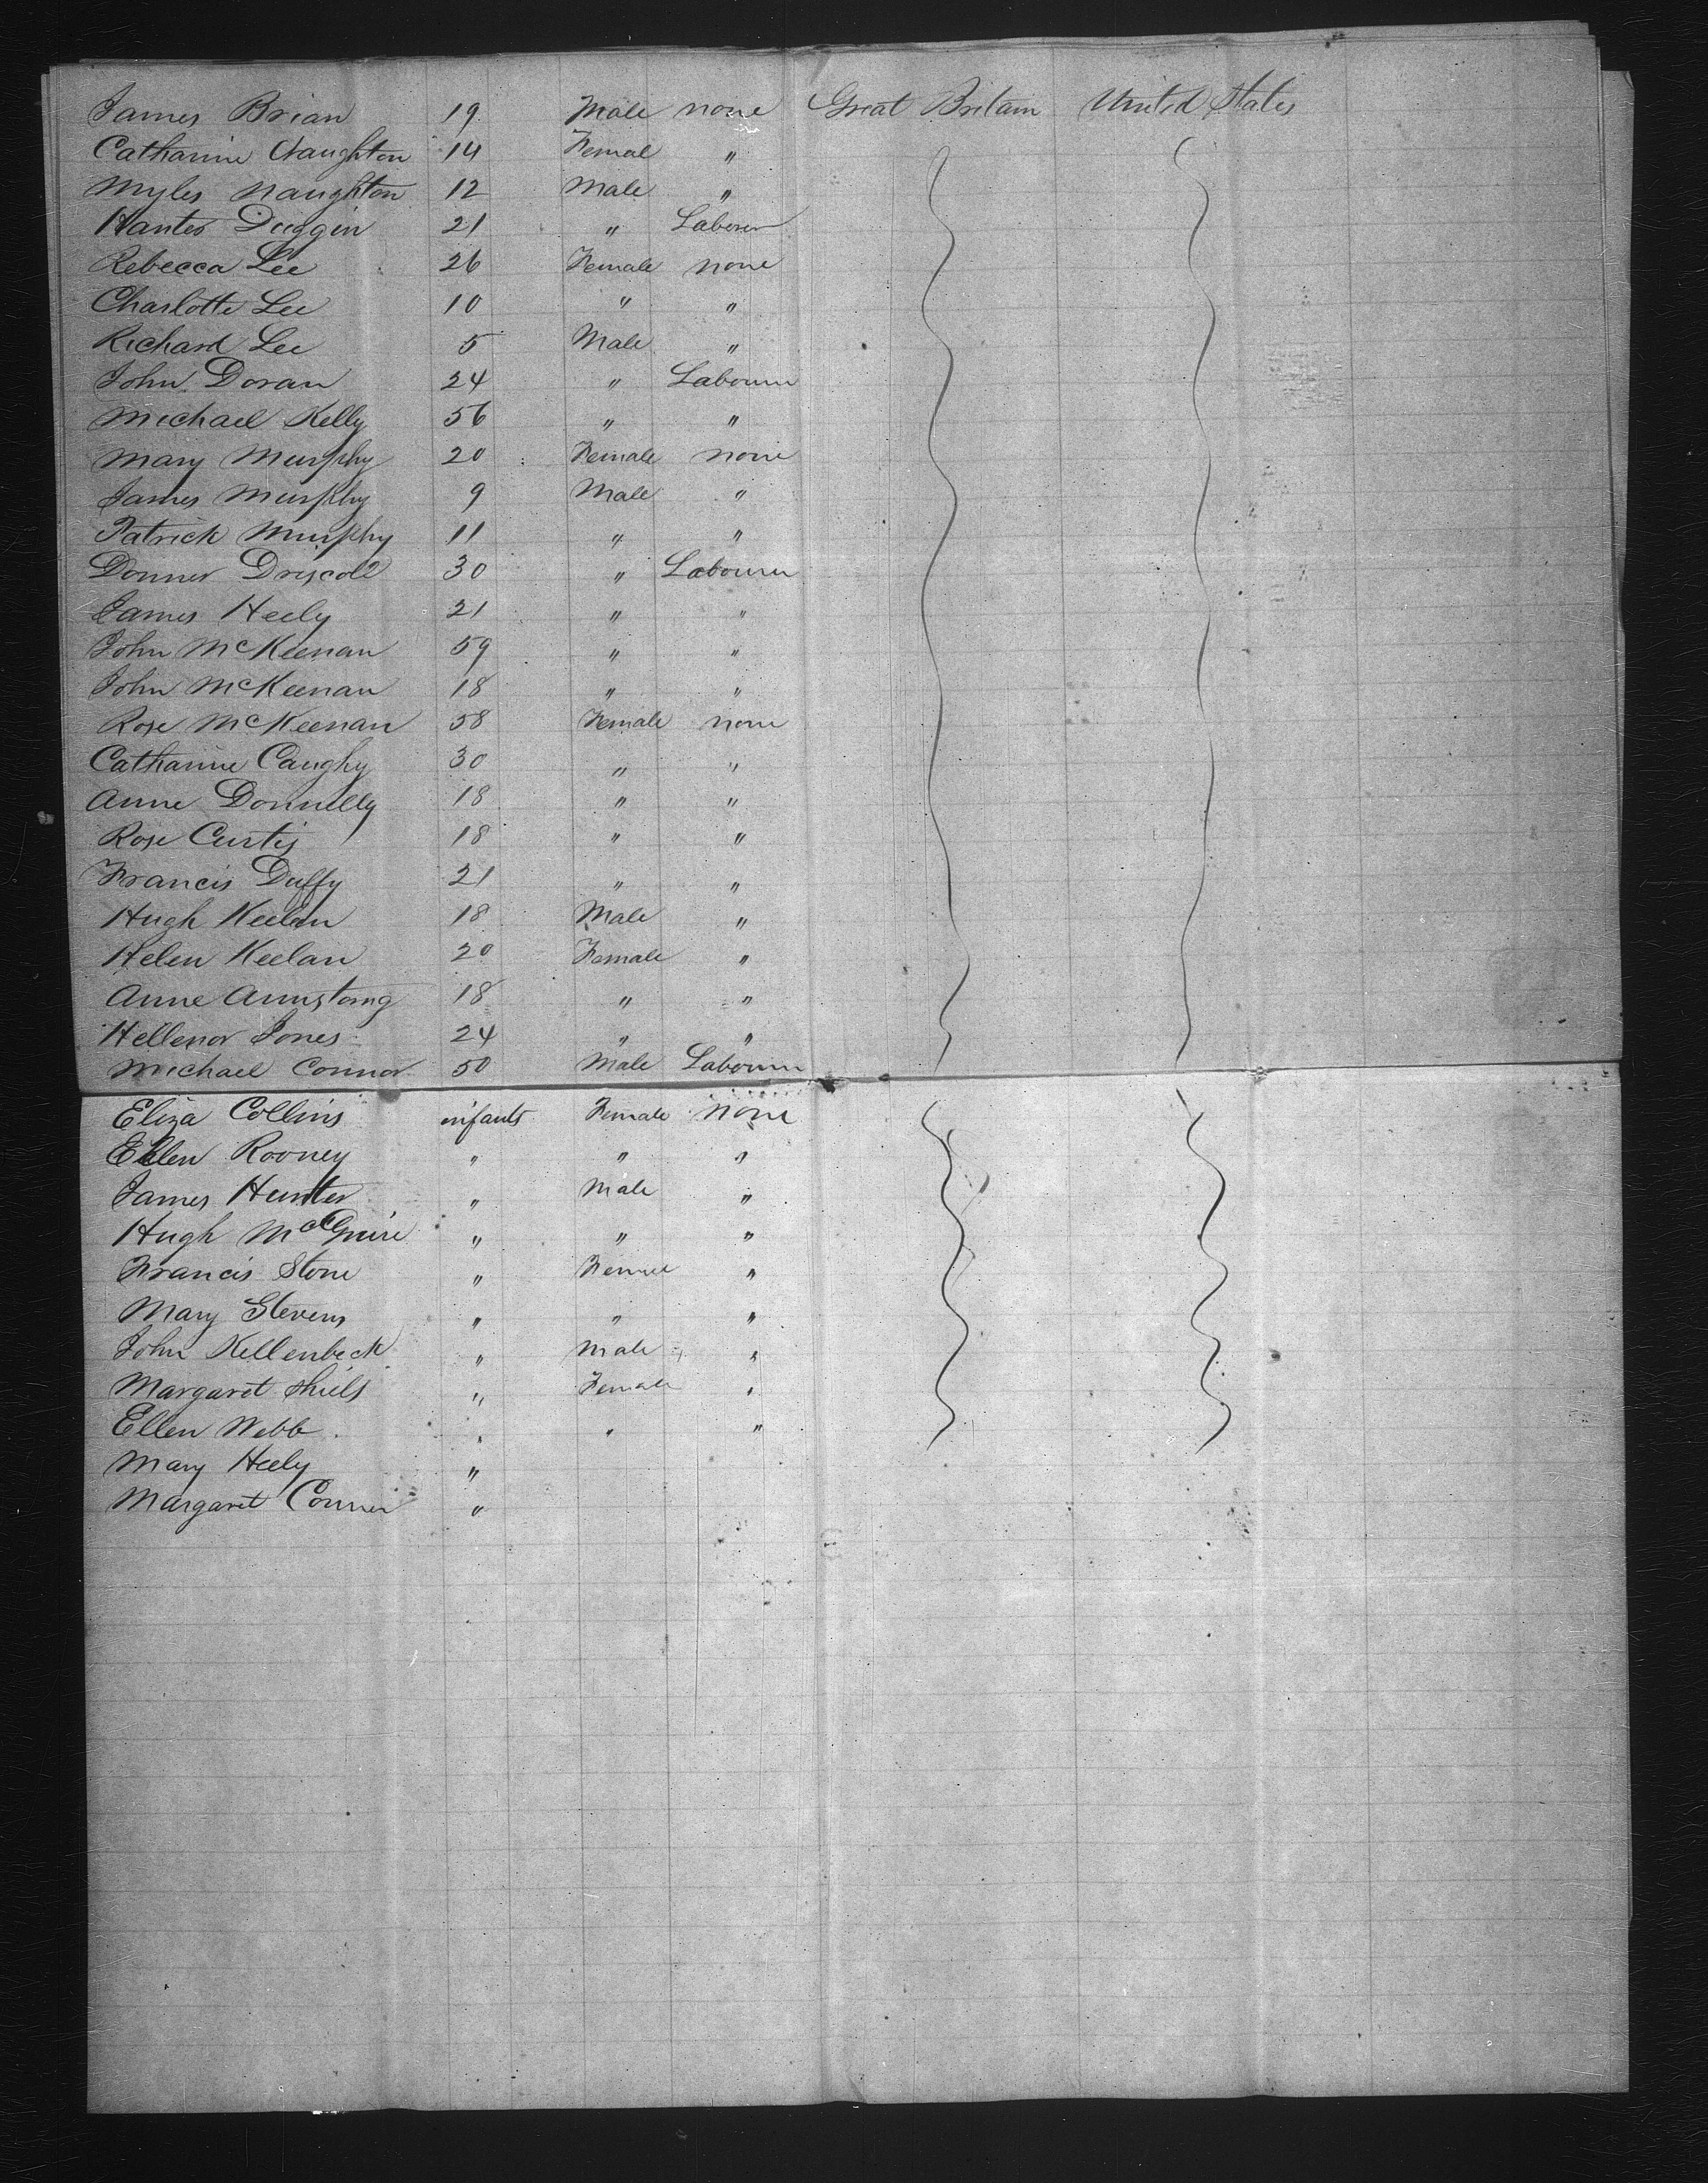 James Brian 19 Male none Great Britain United States
Catharine Naughton 14 Femal "
Myles Naughton 12 Male "
Duggin 21 " Laborer
Rebecca Lee 26 Female none
Charlotte Lee 10 " "
Richard Lee 5 Male "
John Doran 24 " Labourer
Michael Kelly 56 " "
Mary Murphy 20 Female none
James Murphy 9 Male "
Patrick Murphy 11 " "
Donner Driscoll 30 " Labourer
James Heely 21 " "
John McKeenan 59 " "
John McKeenan 18 " "
Rose McKeenan 58 Female none
Catharine Caughy 30 " "
Anne Donnelly 18 " "
Rose Curtis 18 " "
Francis Duffy 21 " "
Hugh Keelan 18 Male "
Helen Keelan 20 Female "
Anne Armstorng 18 " "
Hellenor Jones 24 " "
Michael Connor 50 Male Labourer
Eliza Collins infants Female none
Ellen Rooney " " "
James Hunter " Male "
Hugh McGuire " " "
Francis Stone " Female "
Mary Stevens " " "
John Kellenbeck " Male "
Margaret Shiels " Female "
Ellen Webb " " "
Mary Heely "
Margaret Conner "